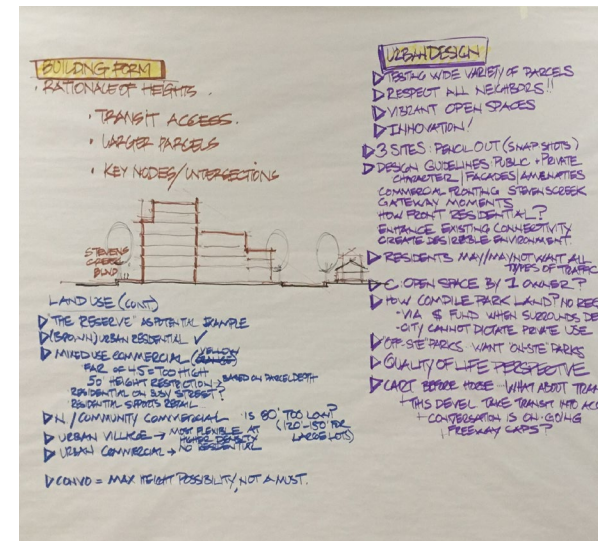 BUILDING FORM
• RATIONALE OF HEIGHTS.
• TRANSIT ACCESS.
• LARGER PARCELS
• KEY NODES/INTERSECTIONS
STEVENS
CREEK
BLVD
LAND USE (CONT)
▷ "THE RESERVE" AS POTENTIAL EXAMPLE
▷ (BROWN) URBAN RESIDENTIAL ✓
▷ MIXED USE COMMERCIAL (YELLOW
FAR OF 4.5 = TOO HIGH
50' HEIGHT RESTRICTION → BASED ON PARCEL DEPTH
RESIDENTIAL ON BUSY STREET?
RESIDENTIAL SUPPORTS RETAIL.
▷ N./COMMUNITY COMMERCIAL IS 80' TOO LOW?
(120'-150' FOR
LARGE LOTS)
▷ URBAN VILLAGE → MOST FLEXIBLE AT
HIGHER DENSITY
▷ URBAN COMMERCIAL → NO RESIDENTIAL
▷ CONVO = MAX HEIGHT POSSIBILITY, NOT A MUST.
URBAN DESIGN
▷ TESTING WIDE VARIETY OF PARCELS
▷ RESPECT ALL NEIGHBORS!!
▷ VIBRANT OPEN SPACES
▷ INNOVATION!
▷ 3 SITES: PENCIL OUT (SNAPSHOTS)
▷ DESIGN GUIDELINES: PUBLIC + PRIVATE
CHARACTER | FACADES | AMENITIES
COMMERCIAL FRONTING STEVENS CREEK
GATEWAY MOMENTS
HOW FRONT RESIDENTIAL?
ENHANCE EXISTING CONNECTIVITY
CREATE DESIREBLE ENVIRONMENT.
▷ RESIDENTS MAY/MAY NOT WANT ALL
TYPES OF TRAFFIC
▷ C: OPEN SPACE BY 1 OWNER?
▷ HOW COMPILE PARK LAND? NO RES
- VIA $ FUND WHEN SURROUNDS DE
- CITY CANNOT DICTATE PRIVATE USE
▷ "OFF-SITE" PARKS WANT "ON-SITE" PARKS
▷ QUALITY OF LIFE PERSPECTIVE
▷ CART BEFORE HORSE... WHAT ABOUT TRAN
THIS DEVEL TAKE TRANSIT INTO ACC
CONVERSATION IS ON-GOING
FREEWAY CAPS?